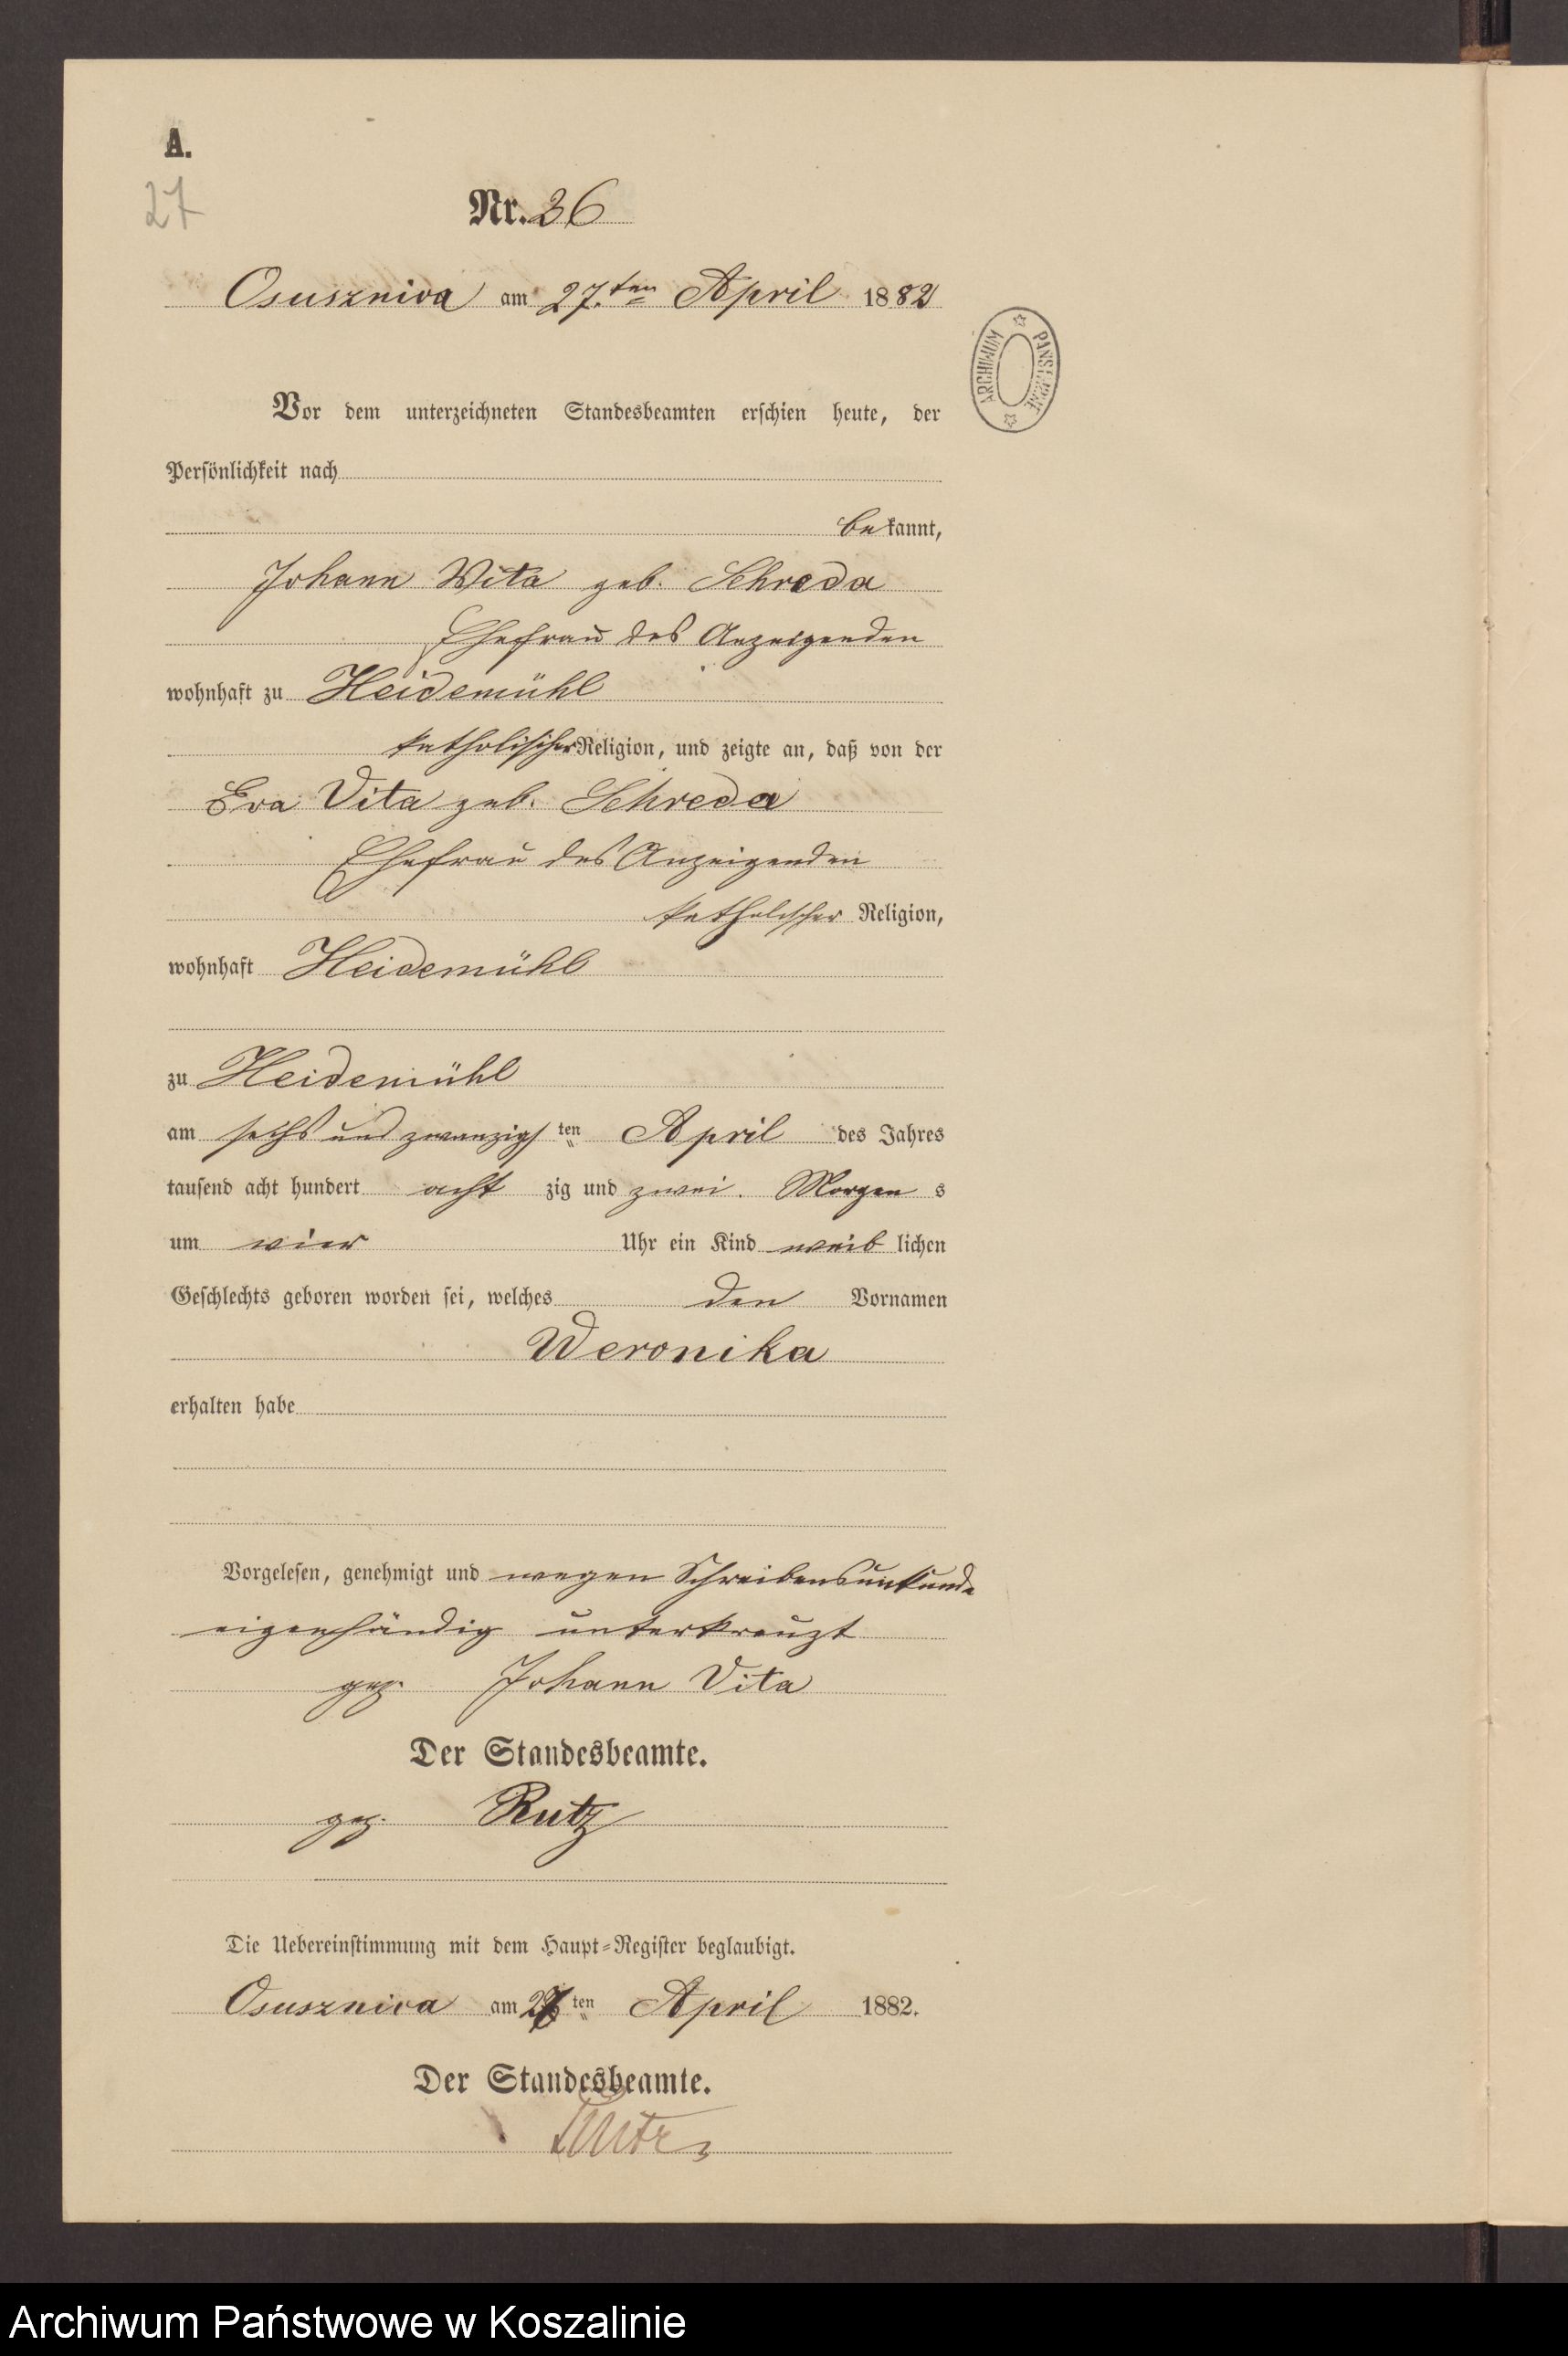 A.
27
Nr. 36
Osuszniva am 27.ten April 1882
ARCHIWUM
Vor dem unterzeichneten Standesbeamten erschien heute, der
Persönlichkeit nach
bekannt,
Johann Wita geb. Schreda
Ehefrau des Anzeigenden
wohnhaft zu Heidemühl
katholischer Religion, und zeigte an, daß von der
Eva Vita geb. Schreda
Ehefrau des Anzeigenden
katholischer Religion,
wohnhaft Heidemühl
zu Heidemühl
am sechs und zwanzigsten April des Jahres
tausend acht hundert acht zig und zwei. Morgen s
um vier Uhr ein Kind weib lichen
Geschlechts geboren worden sei, welches den Vornamen
Weronika
erhalten habe
Vorgelesen, genehmigt und wegen Schreibensunkunde
eigenhändig unterkreuzt
gez. Johann Vita
Der Standesbeamte.
gez. Rutz
Die Uebereinstimmung mit dem Haupt-Register beglaubigt.
Osuszniva am 27 ten April 1882.
Der Standesbeamte.
Rutz
Archiwum Państwowe w Koszalinie